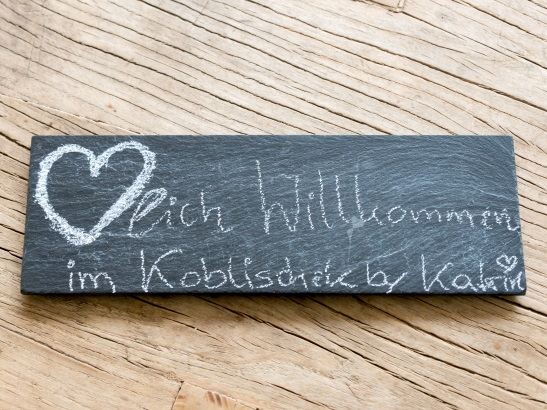 ♥lich Willkommen
im Koblischek by Katrin